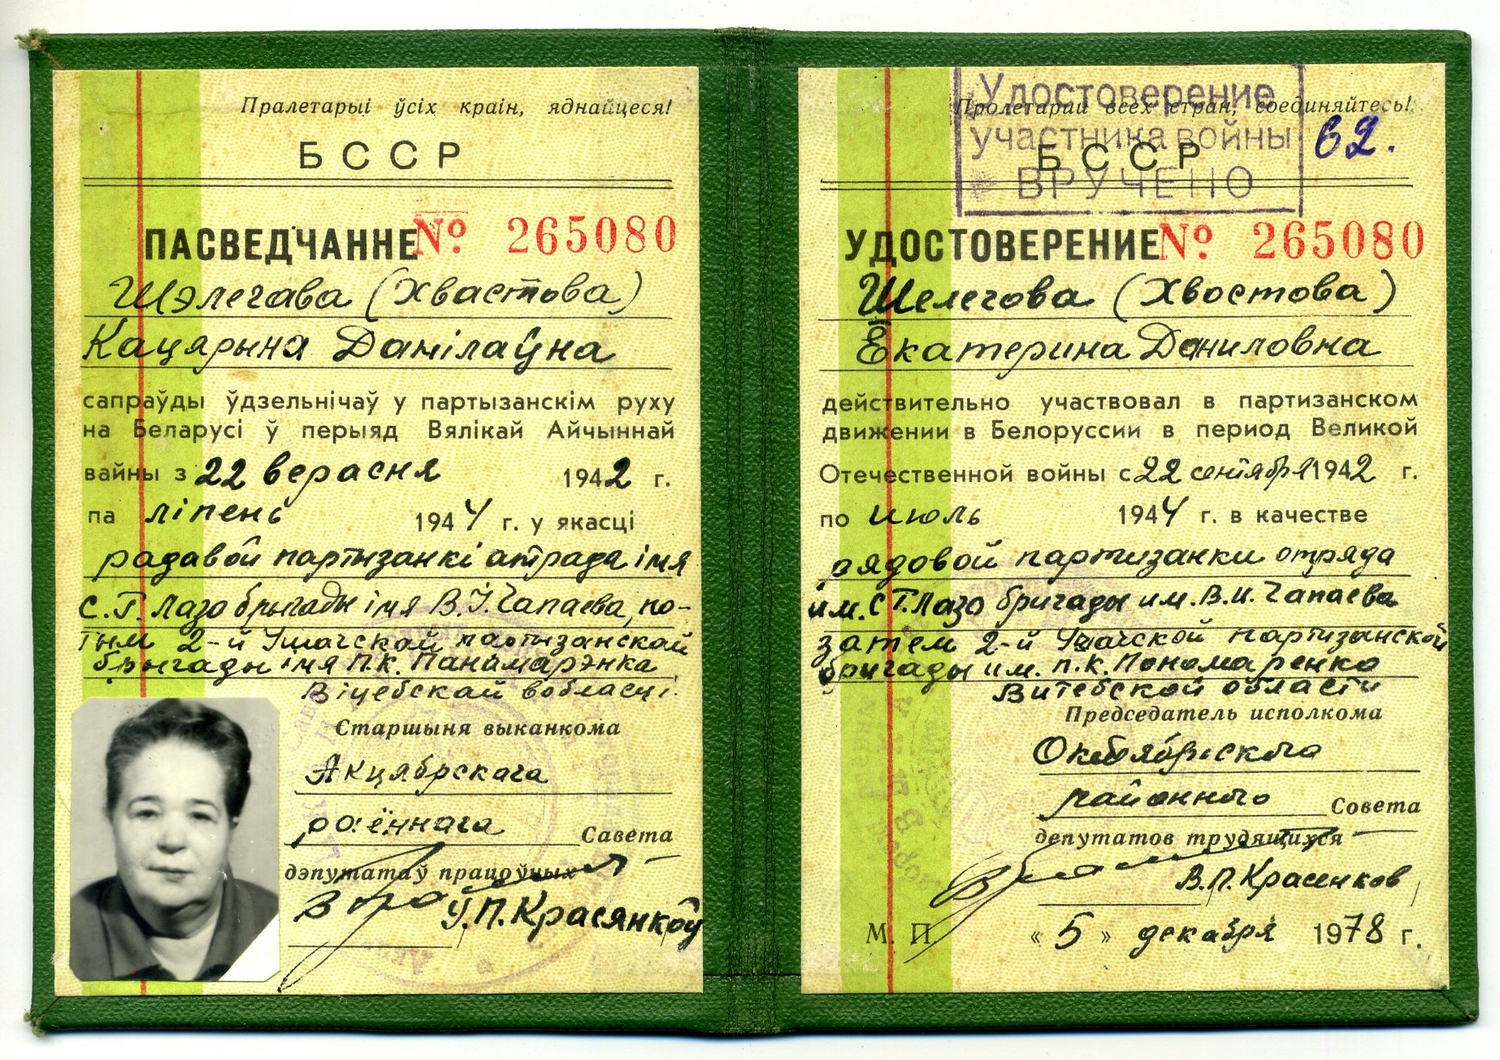 Пралетарыі ўсіх краін, яднайцеся!
БССР
ПАСВЕДЧАННЕ № 265080
Шэлегава (Хвастова)
Кацярына Данілаўна
сапраўды ўдзельнічаў у партызанскім руху
на Беларусі ў перыяд Вялікай Айчыннай
вайны з 22 верасня 1942 г.
па ліпень 1944 г. у якасці
радавой партызанкі атрада імя
С.Г. Лазо брыгады імя В.І. Чапаева, по-
тым 2-й Ушачскай партызанскай
брыгады імя П.К. Панамарэнка
Віцебскай вобласці.
Старшыня выканкома
Акцябрскага
раённага Савета
дэпутатаў працоўных
У.П. Красянкоў
Удостоверение
участника войны
ВРУЧЕНО
62.
Пролетарии всех стран, соединяйтесь!
БССР
УДОСТОВЕРЕНИЕ № 265080
Шелегова (Хвостова)
Екатерина Даниловна
действительно участвовал в партизанском
движении в Белоруссии в период Великой
Отечественной войны с 22 сентября 1942 г.
по июль 1944 г. в качестве
рядовой партизанки отряда
им. С.Г. Лазо бригады им. В.И. Чапаева
затем 2-й Ушачской партизанской
бригады им. П.К. Пономаренко
Витебской области
Председатель исполкома
Октябрьского
районного Совета
депутатов трудящихся
В.П. Красенков
М. П. « 5 » декабря 1978 г.